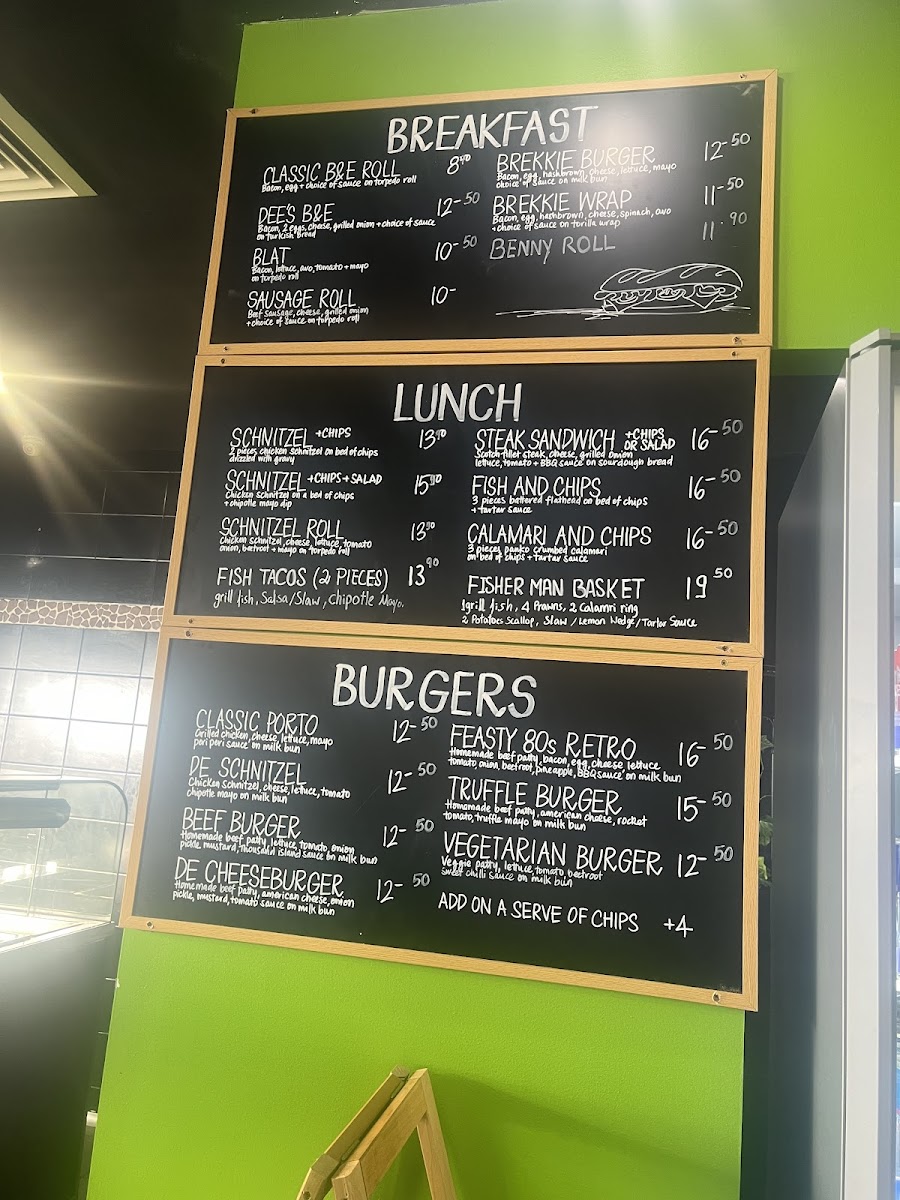 BREAKFAST
CLASSIC B&E ROLL
Bacon, egg + choice of sauce on torpedo roll
DEE'S B&E 12-50
Bacon, 2 eggs, cheese, grilled onion + choice of sauce
on turkish bread
BLAT 10-50
Bacon, lettuce, avo, tomato + mayo
on torpedo roll
SAUSAGE ROLL 10-
Beef Sausage, cheese, grilled onion
+ choice of sauce on torpedo roll
BREKKIE BURGER 12-50
Bacon, egg, hashbrown, cheese, lettuce, mayo
choice of sauce on milk bun
BREKKIE WRAP 11-50
Bacon, egg, hashbrown, cheese, spinach, avo
+ choice of sauce on torilla wrap
BENNY ROLL 11.90
LUNCH
SCHNITZEL +CHIPS 1390
2 pieces chicken schnitzel on bed of chips
drizzled with gravy
SCHNITZEL +CHIPS +SALAD 1590
Chicken schnitzel on a bed of chips
+ chipotle mayo dip
SCHNITZEL ROLL 1390
Chicken schnitzel, cheese, lettuce, tomato
onion, beetroot + mayo on torpedo roll
FISH TACOS (2 PIECES) 1390
grill fish, Salsa/Slaw, Chipotle Mayo.
STEAK SANDWICH +CHIPS OR SALAD 16-50
Scotch fillet steak, cheese, grilled onion
lettuce, tomato + BBQ sauce on sourdough bread
FISH AND CHIPS 16-50
3 pieces battered flathead on bed of chips
+ tartar sauce
CALAMARI AND CHIPS 16-50
3 pieces panko crumbed calamari
on bed of chips + tartar sauce
FISHER MAN BASKET 1950
1grill fish, 4 Prawns, 2 Calamri ring
2 Potatoes Scallop, Slaw / Lemon Wedge / Tartar Sauce
BURGERS
CLASSIC PORTO 12-50
Grilled chicken, cheese, lettuce, mayo
peri peri sauce on milk bun
DE SCHNITZEL 12-50
Chicken schnitzel, cheese, lettuce, tomato
chipotle mayo on milk bun
BEEF BURGER 12-50
Homemade beef patty, lettuce, tomato, onion
pickle, mustard, thousand island sauce on milk bun
DE CHEESEBURGER 12-50
Homemade beef patty, american cheese, onion
pickle, mustard, tomato sauce on milk bun
FEASTY 80s RETRO 16-50
Homemade beef patty, bacon, egg, cheese, lettuce
tomato, onion, beetroot, pineapple, BBQ sauce on milk bun
TRUFFLE BURGER 15-50
Homemade beef patty, american cheese, rocket
tomato, truffle mayo on milk bun
VEGETARIAN BURGER 12-50
Veggie patty, lettuce, tomato beetroot
sweet chilli sauce on milk bun
ADD ON A SERVE OF CHIPS +4